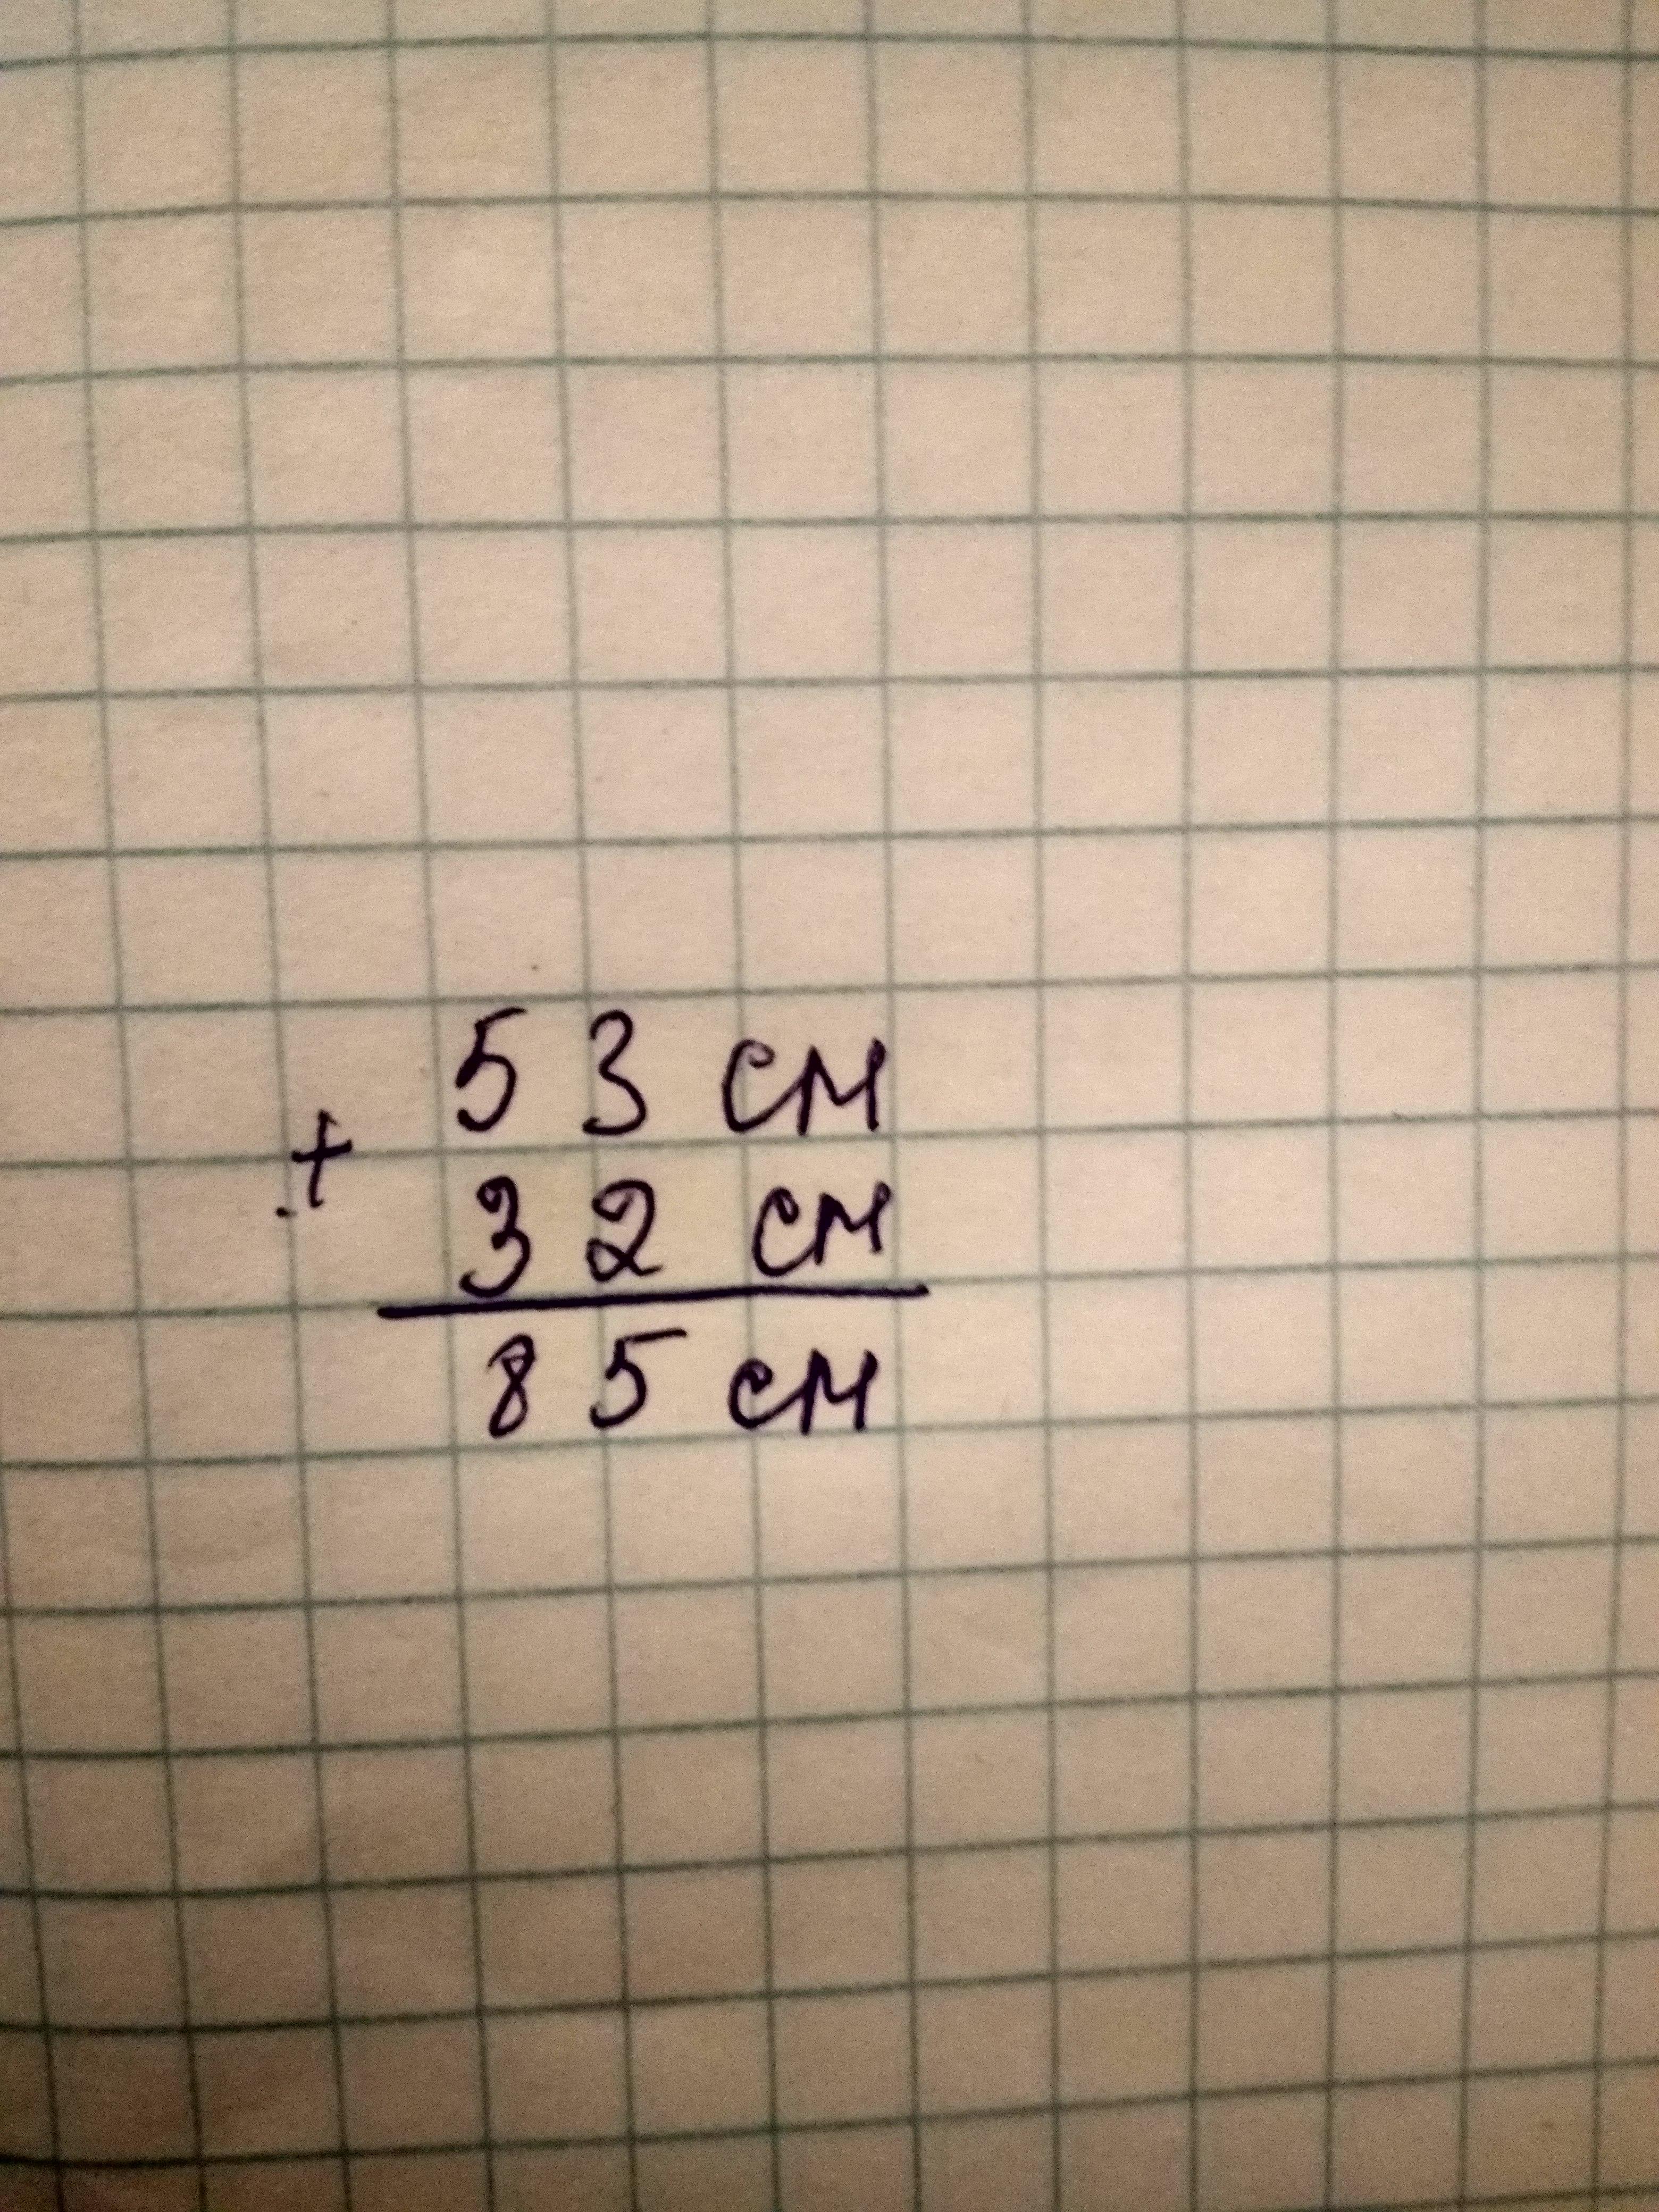 53 см
+
32 см
85 см